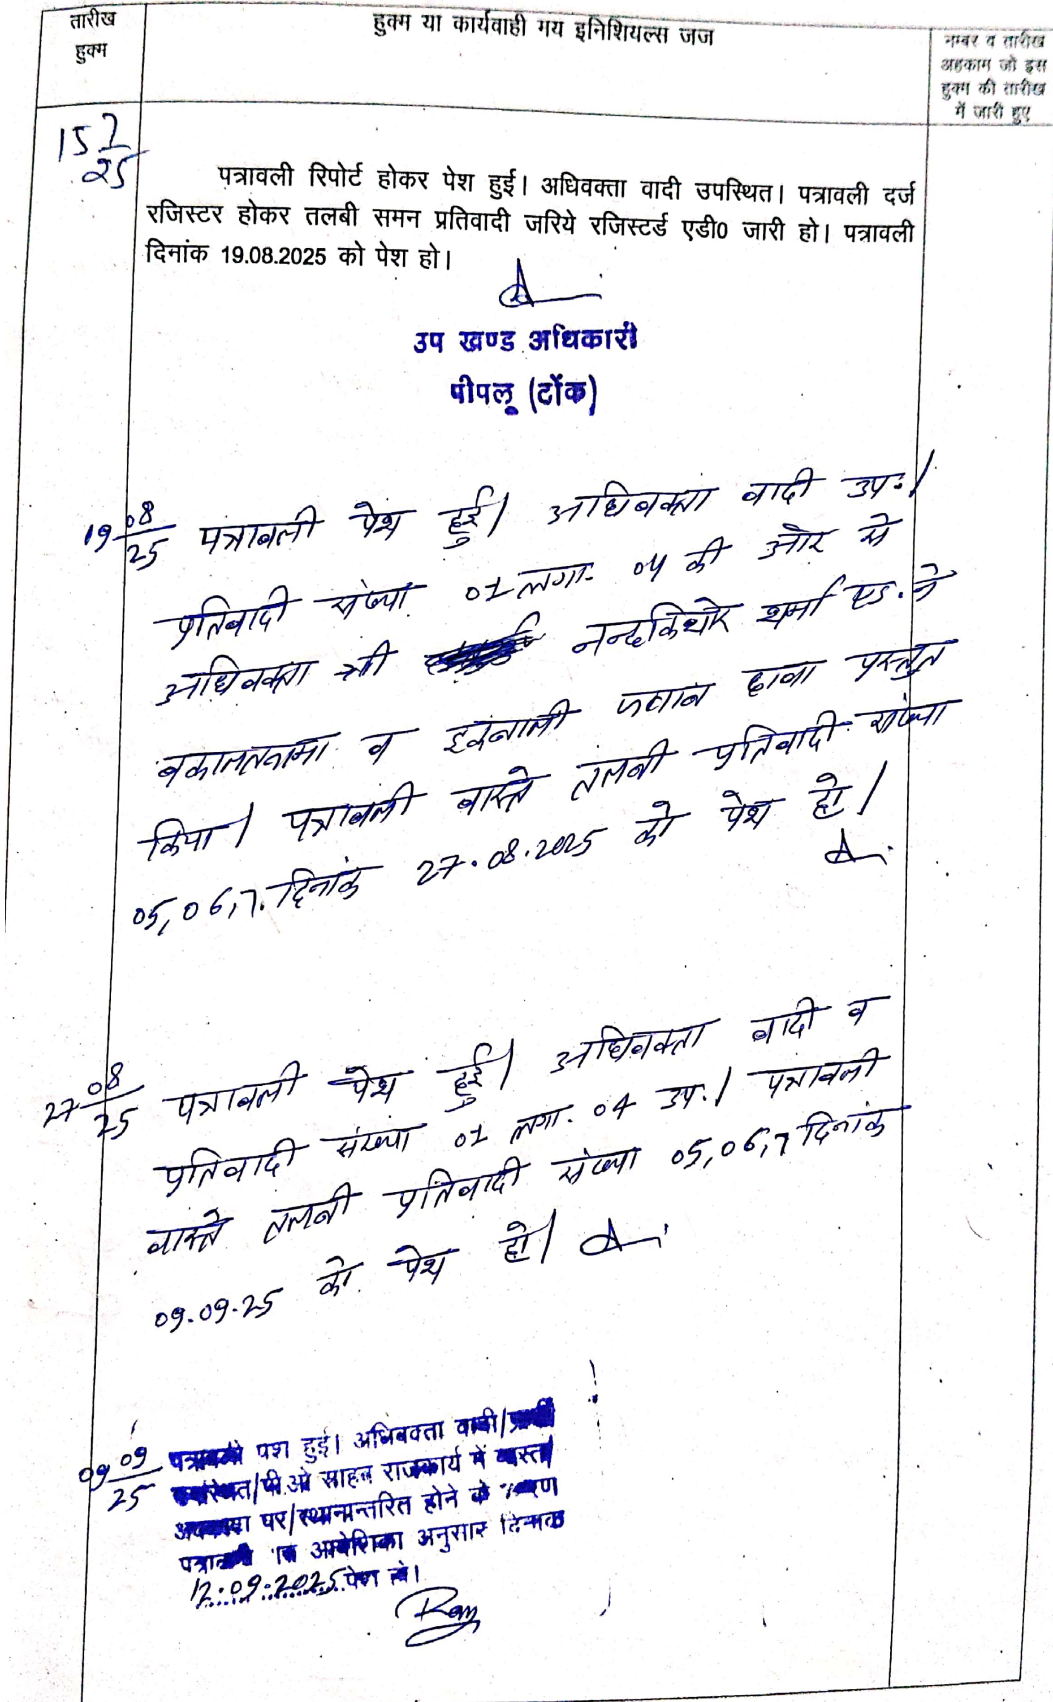 तारीख
हुक्म
हुक्म या कार्यवाही मय इनिशियल्स जज
नम्बर व तारीख
अहकाम जो इस
हुक्म की तारीख
में जारी हुए
15 7/25
पत्रावली रिपोर्ट होकर पेश हुई। अधिवक्ता वादी उपस्थित। पत्रावली दर्ज
रजिस्टर होकर तलबी समन प्रतिवादी जरिये रजिस्टर्ड एडी0 जारी हो। पत्रावली
दिनांक 19.08.2025 को पेश हो।
उप खण्ड अधिकारी
पीपलू (टोंक)
19 08/25 पत्रावली पेश हुई। अधिवक्ता वादी उप.।
प्रतिवादी संख्या 01 लगा. 04 की ओर से
अधिवक्ता श्री नन्दकिशोर शर्मा एड. ने
वकालतनामा व इकबाली जवाब दावा प्रस्तुत
किया। पत्रावली वास्ते तलबी प्रतिवादी संख्या
05,06,7. दिनांक 27.08.2025 को पेश हो।
27 08/25 पत्रावली पेश हुई। अधिवक्ता वादी व
प्रतिवादी संख्या 01 लगा. 04 उप.। पत्रावली
वास्ते तलबी प्रतिवादी संख्या 05,06,7 दिनांक
09.09.25 को पेश हो।
09 09/25 पत्रावली पेश हुई। अधिवक्ता वादी/
/पी.ओ साहब राजकार्य में व्यस्त/
अवकाश पर/स्थानान्तरित होने के कारण
पत्रावली आदेशिका अनुसार दिनांक
12.09.2025 पेश हो।